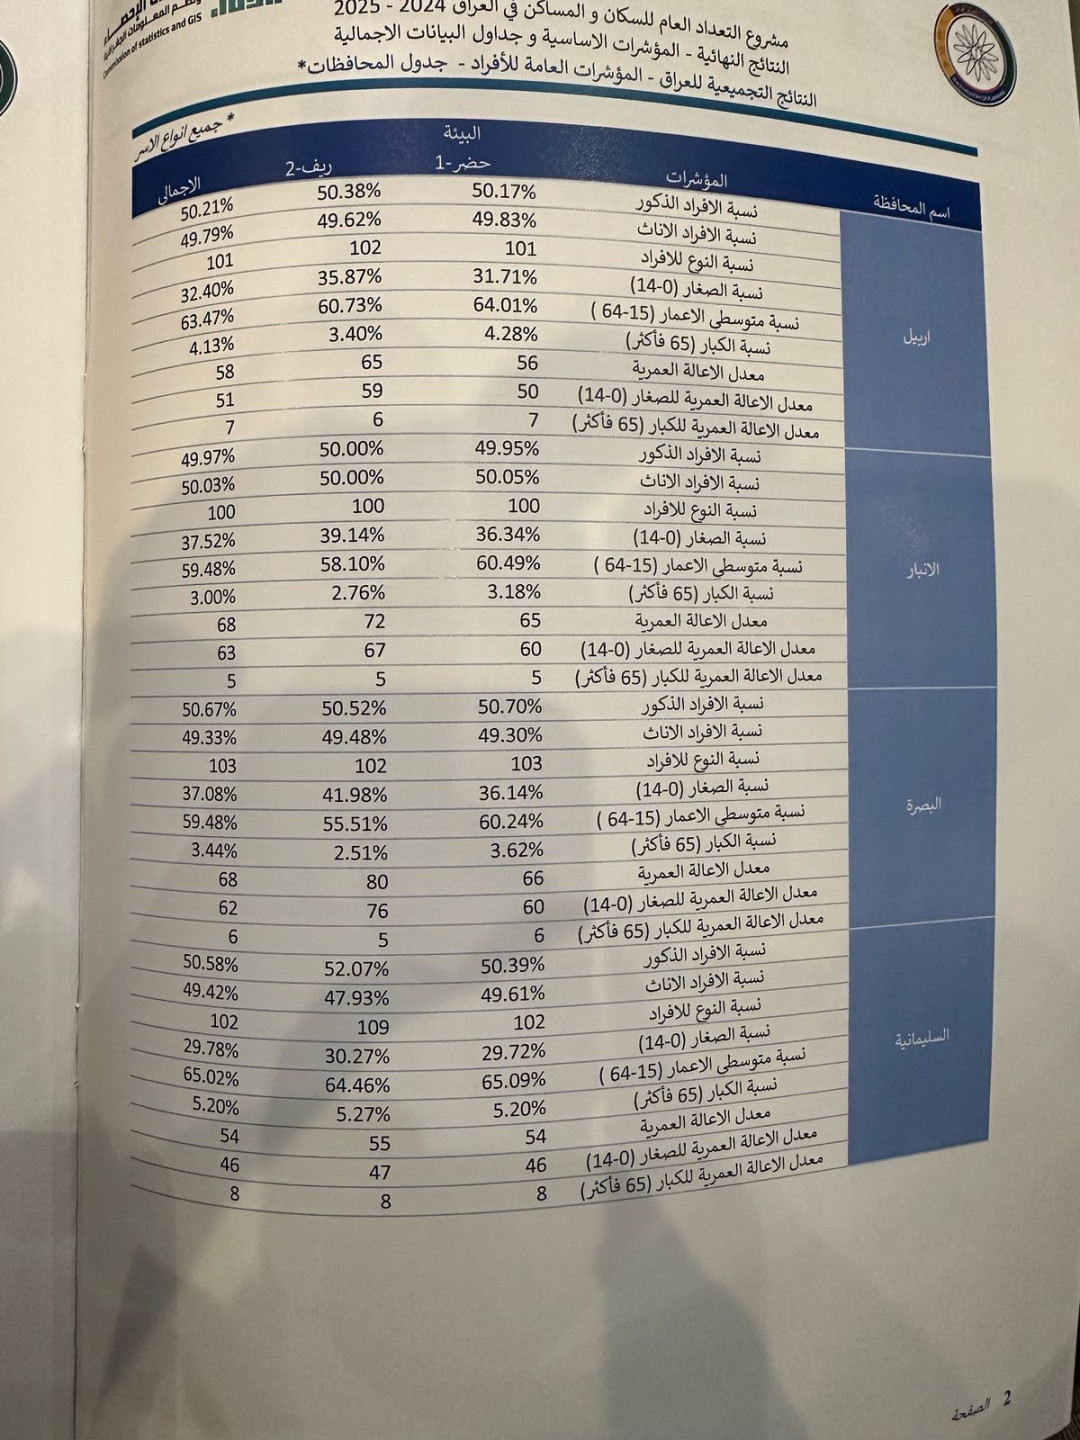 الإحصاء
ونظم المعلومات الجغرافية
Commission of statistics and GIS
مشروع التعداد العام للسكان و المساكن في العراق 2024 - 2025
النتائج النهائية - المؤشرات الاساسية و جداول البيانات الاجمالية
النتائج التجميعية للعراق - المؤشرات العامة للأفراد - جدول المحافظات*
* جميع انواع الاسر
البيئة
اسم المحافظة المؤشرات حضر-1 ريف-2 الاجمالي
اربيل
نسبة الافراد الذكور 50.17% 50.38% 50.21%
نسبة الافراد الاناث 49.83% 49.62% 49.79%
نسبة النوع للافراد 101 102 101
نسبة الصغار (0-14) 31.71% 35.87% 32.40%
نسبة متوسطي الاعمار (15-64 ) 64.01% 60.73% 63.47%
نسبة الكبار (65 فأكثر) 4.28% 3.40% 4.13%
معدل الاعالة العمرية 56 65 58
معدل الاعالة العمرية للصغار (0-14) 50 59 51
معدل الاعالة العمرية للكبار (65 فأكثر) 7 6 7
الانبار
نسبة الافراد الذكور 49.95% 50.00% 49.97%
نسبة الافراد الاناث 50.05% 50.00% 50.03%
نسبة النوع للافراد 100 100 100
نسبة الصغار (0-14) 36.34% 39.14% 37.52%
نسبة متوسطي الاعمار (15-64 ) 60.49% 58.10% 59.48%
نسبة الكبار (65 فأكثر) 3.18% 2.76% 3.00%
معدل الاعالة العمرية 65 72 68
معدل الاعالة العمرية للصغار (0-14) 60 67 63
معدل الاعالة العمرية للكبار (65 فأكثر) 5 5 5
البصرة
نسبة الافراد الذكور 50.70% 50.52% 50.67%
نسبة الافراد الاناث 49.30% 49.48% 49.33%
نسبة النوع للافراد 103 102 103
نسبة الصغار (0-14) 36.14% 41.98% 37.08%
نسبة متوسطي الاعمار (15-64 ) 60.24% 55.51% 59.48%
نسبة الكبار (65 فأكثر) 3.62% 2.51% 3.44%
معدل الاعالة العمرية 66 80 68
معدل الاعالة العمرية للصغار (0-14) 60 76 62
معدل الاعالة العمرية للكبار (65 فأكثر) 6 5 6
السليمانية
نسبة الافراد الذكور 50.39% 52.07% 50.58%
نسبة الافراد الاناث 49.61% 47.93% 49.42%
نسبة النوع للافراد 102 109 102
نسبة الصغار (0-14) 29.72% 30.27% 29.78%
نسبة متوسطي الاعمار (15-64 ) 65.09% 64.46% 65.02%
نسبة الكبار (65 فأكثر) 5.20% 5.27% 5.20%
معدل الاعالة العمرية 54 55 54
معدل الاعالة العمرية للصغار (0-14) 46 47 46
معدل الاعالة العمرية للكبار (65 فأكثر) 8 8 8
2 الصفحة